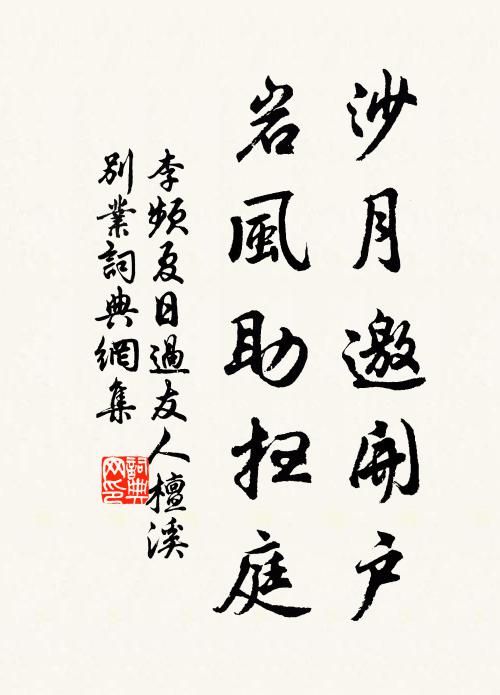 沙月邀開户
岩風助扫庭
李頻夏日過友人檀溪
別業詞典網集
詞典
网印